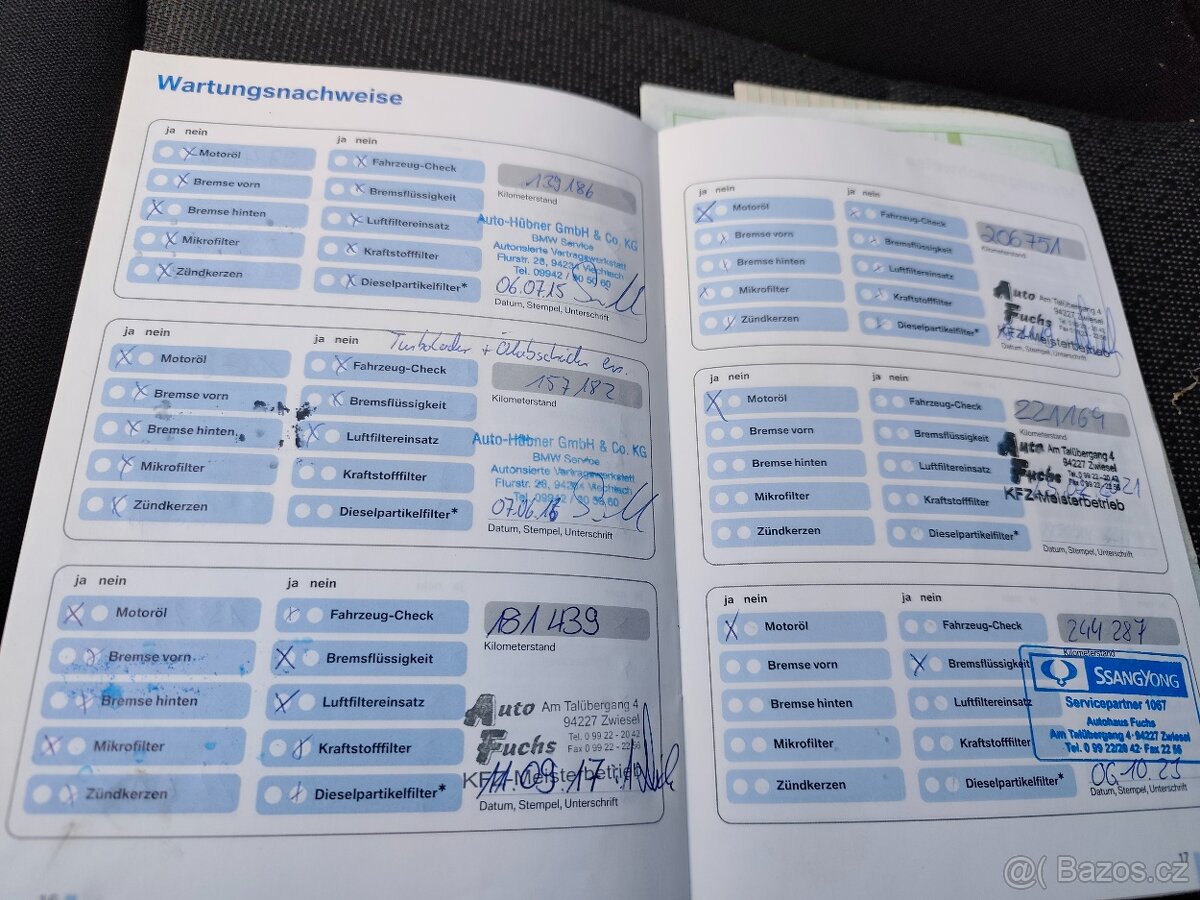 Wartungsnachweise
ja nein
ja nein
Motoröl
Fahrzeug-Check
139186
Bremse vorn
Bremsflüssigkeit
Kilometerstand
Bremse hinten
Luftfiltereinsatz
Auto-Hübner GmbH & Co. KG
BMW Service
Mikrofilter
Kraftstofffilter
Autorisierte Vertragswerkstatt
Flurstr. 28, 94234 Viechtach
Zündkerzen
Dieselpartikelfilter*
Tel. 09942 / 80 50 60
06.07.15
Datum, Stempel, Unterschrift
ja nein
ja nein
Turbolader +
Motoröl
Fahrzeug-Check
157182
Bremse vorn
Bremsflüssigkeit
Kilometerstand
Bremse hinten
Luftfiltereinsatz
Auto-Hübner GmbH & Co. KG
BMW Service
Mikrofilter
Kraftstofffilter
Autorisierte Vertragswerkstatt
Flurstr. 28, 94234 Viechtach
Zündkerzen
Dieselpartikelfilter*
Tel. 09942 / 80 50 60
07.06.16
Datum, Stempel, Unterschrift
ja nein
ja nein
Motoröl
Fahrzeug-Check
181439
Bremse vorn
Bremsflüssigkeit
Kilometerstand
Bremse hinten
Luftfiltereinsatz
Auto Fuchs
Am Talübergang 4
94227 Zwiesel
Mikrofilter
Kraftstofffilter
Tel. 0 99 22 - 20 42
Fax 0 99 22 - 22 56
KFZ-Meisterbetrieb
Zündkerzen
Dieselpartikelfilter*
11.09.17
Datum, Stempel, Unterschrift
ja nein
ja nein
Motoröl
Fahrzeug-Check
206751
Bremse vorn
Bremsflüssigkeit
Kilometerstand
Bremse hinten
Luftfiltereinsatz
Auto Fuchs
Am Talübergang 4
94227 Zwiesel
Mikrofilter
Kraftstofffilter
Tel. 0 99 22 - 20 42
Fax 0 99 22 - 22 56
KFZ-Meisterbetrieb
Zündkerzen
Dieselpartikelfilter*
Datum, Stempel, Unterschrift
ja nein
ja nein
Motoröl
Fahrzeug-Check
221164
Bremse vorn
Bremsflüssigkeit
Kilometerstand
Bremse hinten
Luftfiltereinsatz
Auto Fuchs
Am Talübergang 4
94227 Zwiesel
Mikrofilter
Kraftstofffilter
Tel. 0 99 22 - 20 42
Fax 0 99 22 - 22 56
KFZ-Meisterbetrieb
Zündkerzen
Dieselpartikelfilter*
Datum, Stempel, Unterschrift
ja nein
ja nein
Motoröl
Fahrzeug-Check
244 287
Kilometerstand
Bremse vorn
Bremsflüssigkeit
SSANGYONG
Bremse hinten
Luftfiltereinsatz
Servicepartner 1067
Autohaus Fuchs
Mikrofilter
Kraftstofffilter
Am Talübergang 4 · 94227 Zwiesel
Tel. 0 99 22/20 42 · Fax 22 56
Zündkerzen
Dieselpartikelfilter*
06.10.23
Datum, Stempel, Unterschrift
16
17
@( Bazos.cz